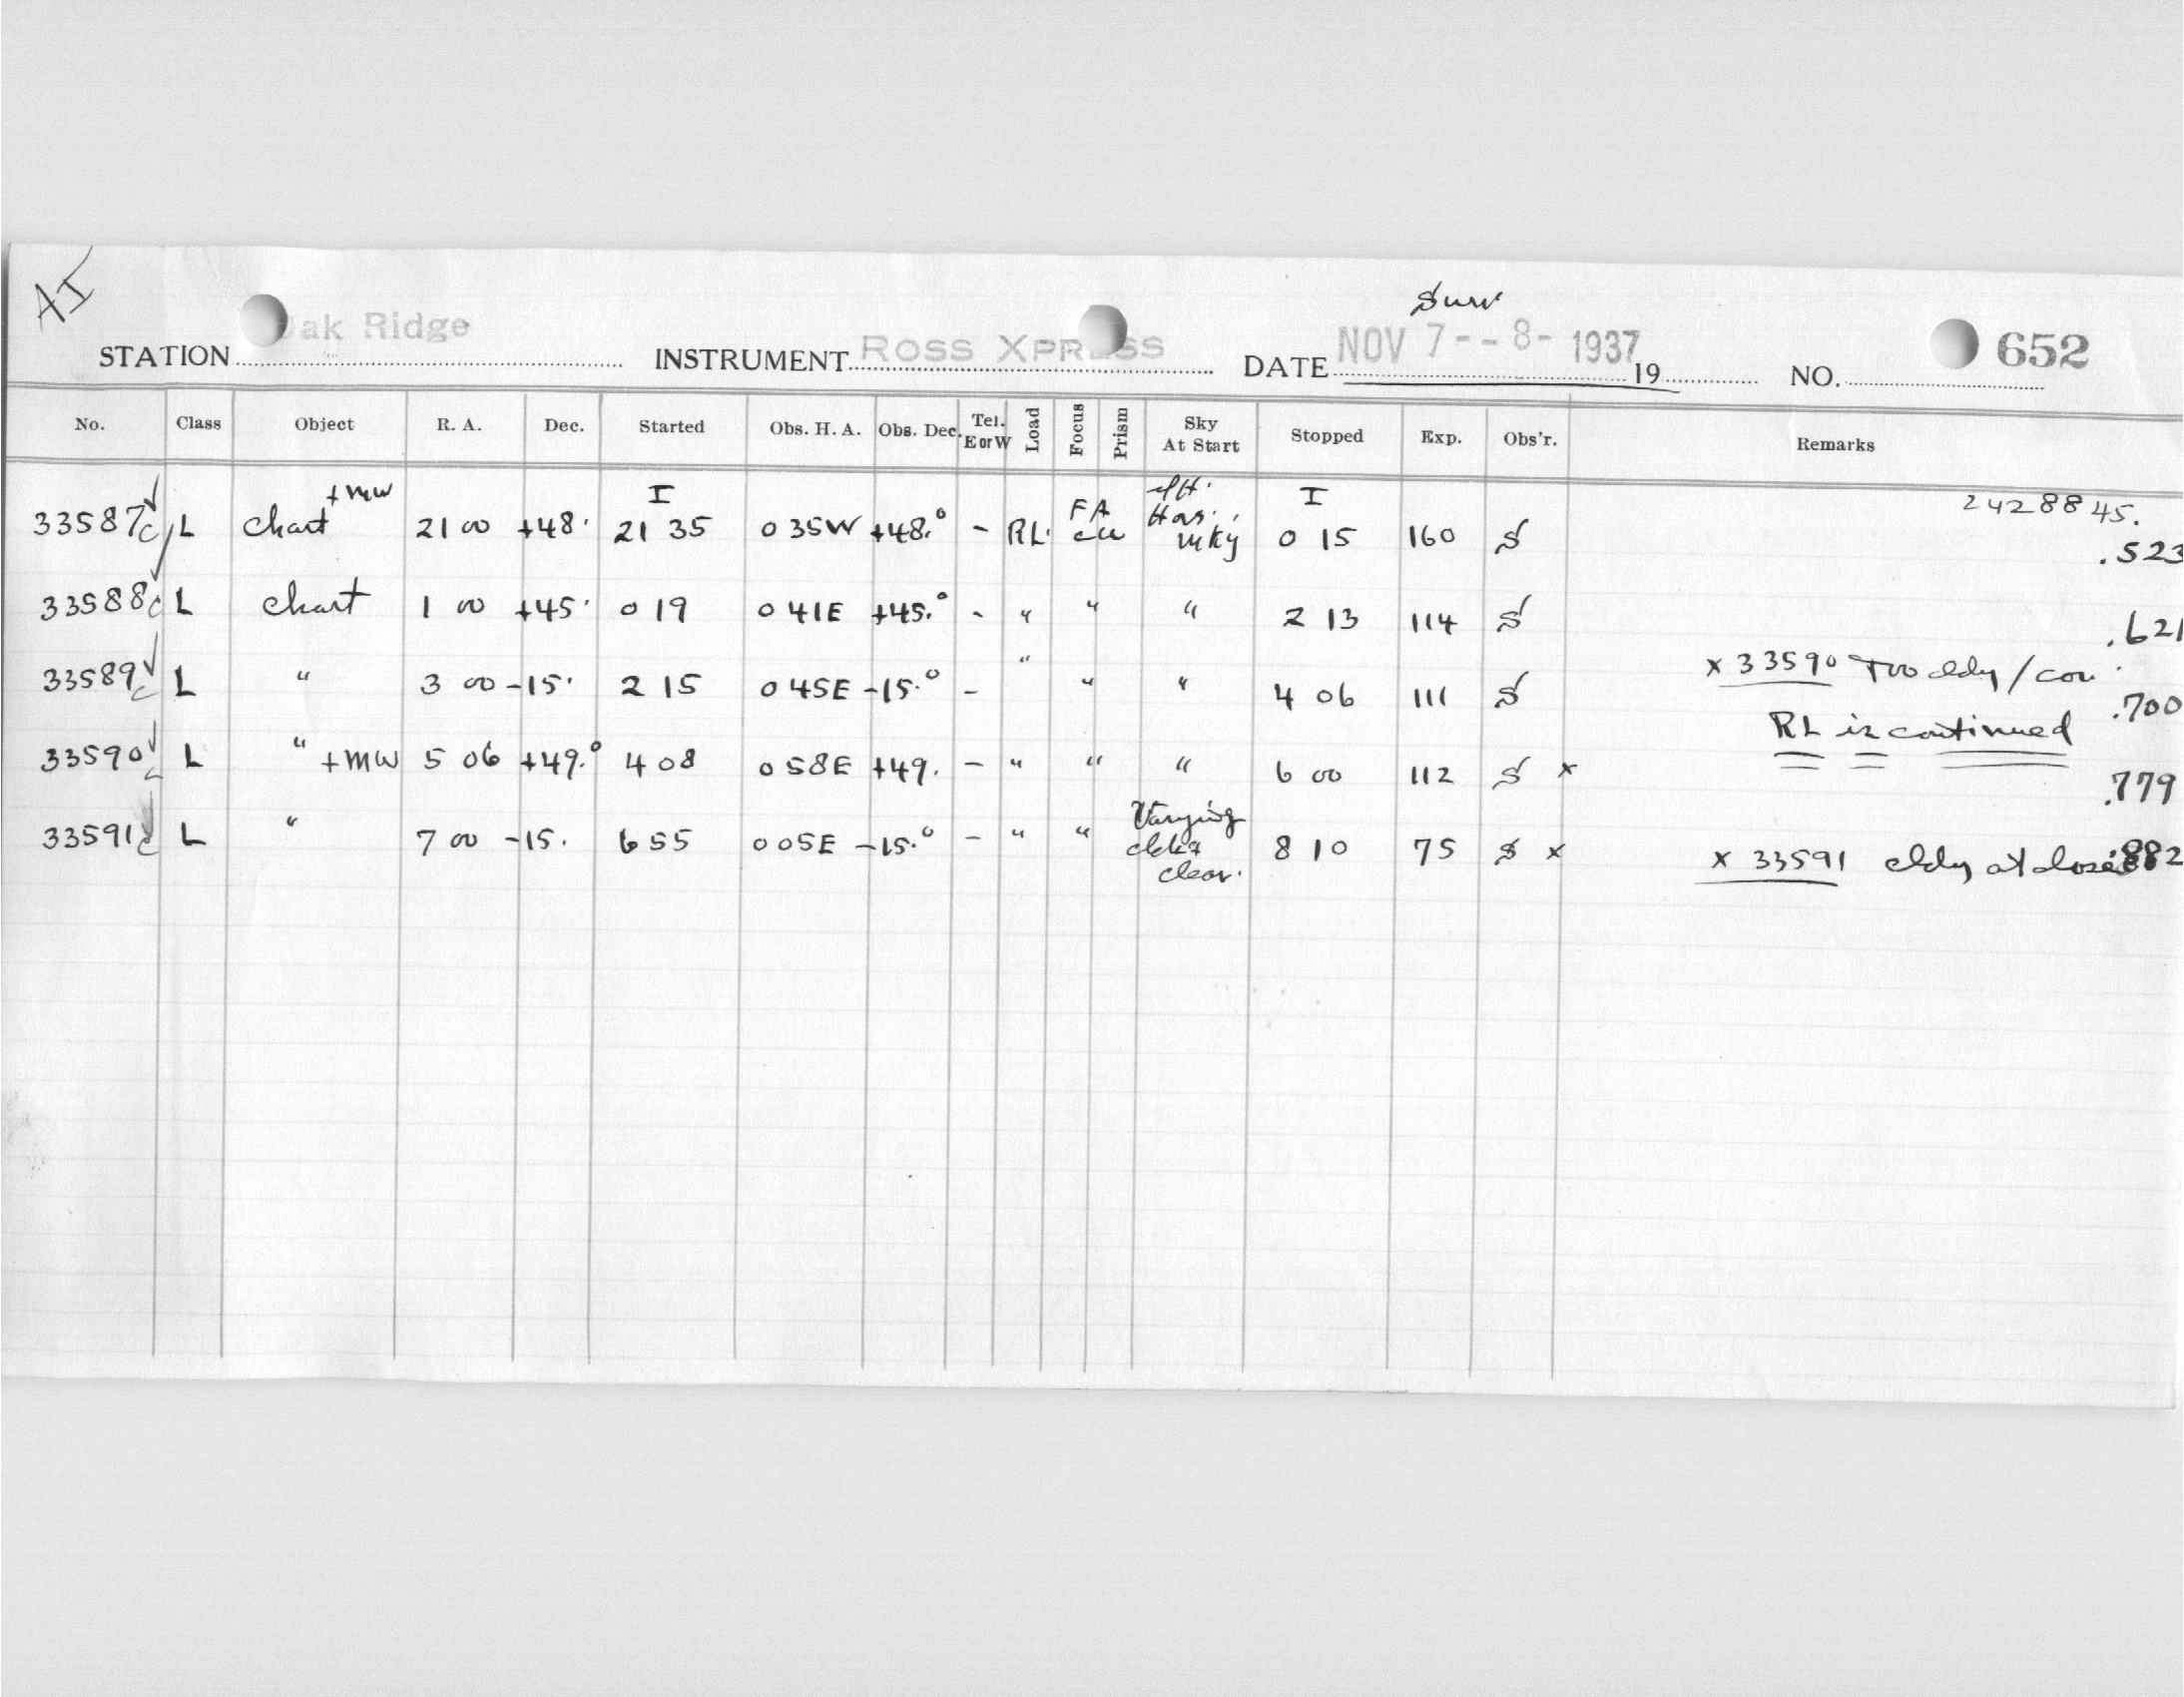 AI
Sun
STATION Oak Ridge INSTRUMENT ROSS XPRESS DATE NOV 7--8-1937 19 NO. 652
No. Class Object R. A. Dec. Started Obs. H. A. Obs. Dec. Tel. E or W Load Focus Prism Sky At Start Stopped Exp. Obs'r. Remarks
+mw I FA I 2428845.
33587c L chart 21 00 +48° 21 35 0 35W +48.° - RL. mky 0 15 160 S .523
33588c L chart 1 00 +45° 0 19 0 41E +45.° - " " " 2 13 114 S .621
x 33590 Two cldy/con
33589c L " 3 00 -15° 2 15 0 45E -15.° - " " " 4 06 111 S .700
RL is continued
33590c L " +mw 5 06 +49.° 4 08 0 58E +49. - " " " 6 00 112 S x .779
Varying
33591c L " 7 00 -15. 6 55 0 05E -15.° - " " 8 10 75 S x x 33591 cldy at close .882
clear.